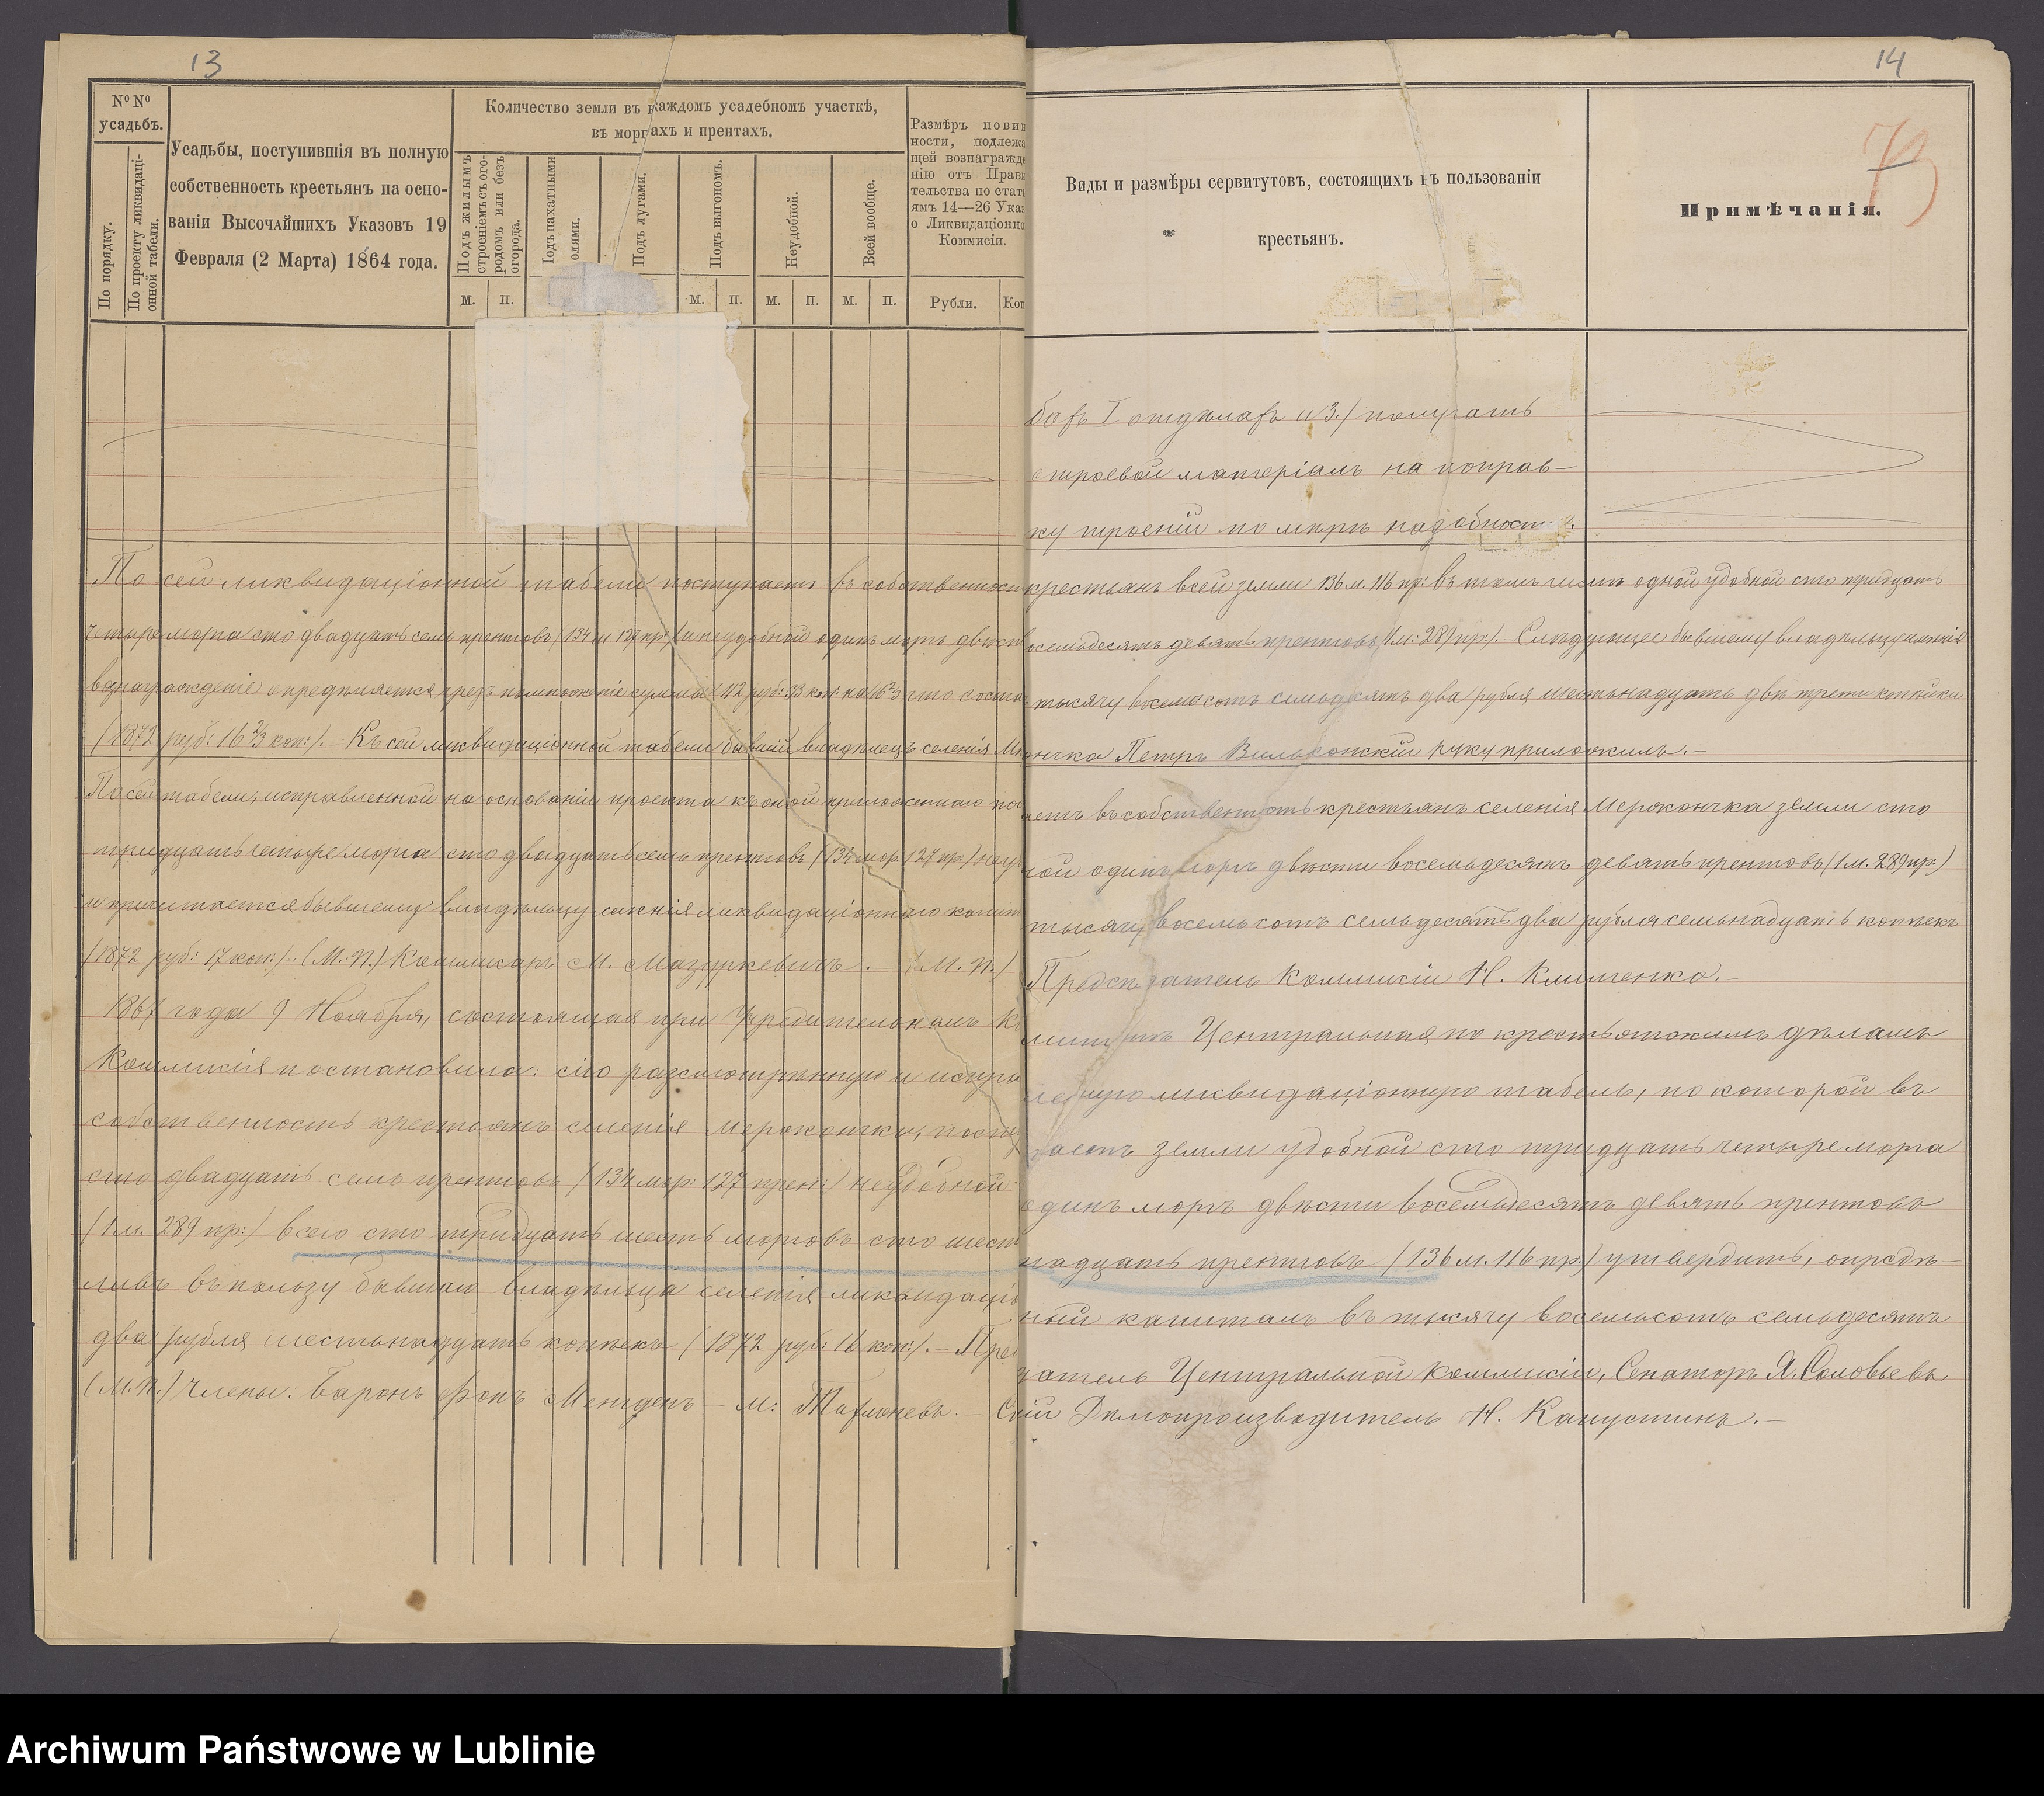 13
№ №
усадьбъ.
По порядку.
По проекту ликвидаці-
онной табели.
Усадьбы, поступившія въ полную
собственность крестьянъ на осно-
ваніи Высочайшихъ Указовъ 19
Февраля (2 Марта) 1864 года.
Количество земли въ каждомъ усадебномъ участкѣ,
въ моргахъ и прентахъ.
Подъ жилымъ
строеніемъ съ ого-
родомъ или безъ
огорода.
Подъ пахатными
полями.
Подъ лугами.
Подъ выгономъ.
Неудобной.
Всей вообще.
м. п. м. п. м. п. м. п.
Размѣръ повин
ности, подлежа
щей вознагражде
нію отъ Прави
тельства по стать
ямъ 14—26 Указ
о Ликвидаціонно
Коммисіи.
Рубли. Коп
14
73
Виды и размѣры сервитутовъ, состоящихъ въ пользованіи
крестьянъ.
Примѣчанія.
и 3.) получать
строевой матеріалъ на поправ-
ку строеній по мѣрѣ надобности.
По сей ликвидаціонной табели поступаетъ въ собственность крестьянъ всей земли 136 м. 116 пр: въ томъ числѣ одной удобной сто тридцать
четыре морга сто двадцать семь прентовъ (134 м. 127 пр:) и неудобной одинъ моргъ двѣсти восемьдесятъ девять прентовъ (1 м: 289 пр:). – Слѣдующее бывшему владѣльцу имѣнія
вознагражденіе опредѣляется чрезъ помноженіе суммы (112 руб: 33 коп: на 16⅔ что соста тысячу восемьсотъ семьдесятъ два рубля шестьнадцать двѣ трети копѣйки
(1872 руб: 16⅔ коп:). – Къ сей ликвидаціонной табели бывшій владѣлецъ селенія Петръ руку приложилъ. –
По сей табели, исправленной на основаніи проекта къ оной приложеннаго пос аетъ въ собственность крестьянъ селенія Мерокончка земли сто
тридцать четыре морга сто двадцать семь прентовъ (134 мор. 127 пр:) неуд ной одинъ моргъ двѣсти восемьдесятъ девять прентовъ (1 м. 289 пр:)
и причитается бывшему владѣльцу имѣнія ликвидаціоннаго капит тысячу восемьсотъ семьдесятъ два рубля семьнадцать копѣекъ
(1872 руб: 17 коп:). (М. П.) Коммисаръ М. Мазуркевичъ. – (М. П.) Предсѣдатель Коммисіи Н. Клименко. –
1867 года 9 Ноября, состоящая при Учредительномъ Комитетѣ Центральная по крестьянскимъ дѣламъ
Коммисія постановила: сію разсмотрѣнную и исправленную ликвидаціонную табель, по которой въ
собственность крестьянъ селенія Мерокончка, поступаетъ земли удобной сто тридцать четыре морга
сто двадцать семь прентовъ (134 мор: 127 прен:) неудобной одинъ моргъ двѣсти восемьдесятъ девять прентовъ
(1 м. 289 пр:) всего сто тридцать шесть морговъ сто шестнадцать прентовъ (136 м. 116 пр:) утвердить, опредѣ-
ливъ въ пользу бывшаго владѣльца селенія ликвидаціонный капиталъ въ тысячу восемьсотъ семьдесятъ
два рубля шестьнадцать копѣекъ (1872 руб: 16 коп:). – Предсѣдатель Центральной Коммисіи, Сенаторъ Я. Соловьевъ
(М. П.) Члены: Баронъ фонъ Менгденъ – М: – Дѣлопроизводитель Н. Капустинъ. –
Archiwum Państwowe w Lublinie